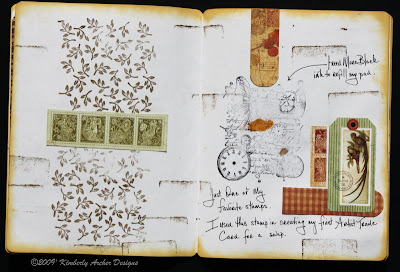 ink to refill my pad.
Just One of My
favorite stamps.
I used this stamp in creating my first Artist Trade
Card for a swap.
©2009 Kimberly Archer Designs